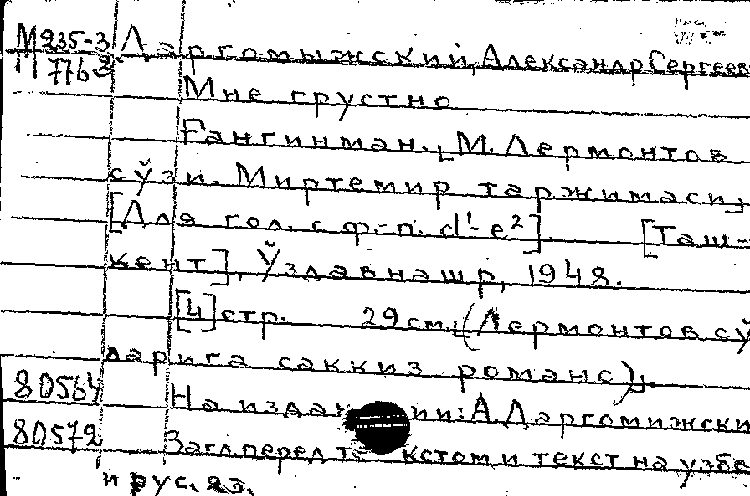 М235-3 Даргомыжский, Александр Сергеев
М776
Мне грустно
Ғангинман. М. Лермонтов
сўзи. Миртемир таржимаси.
[Для гол. с ф.-п. d'-e²] [Таш-
кент], Ўздавнашр, 1948.
[4] стр. 29 см. (Лермонтов сў
ларига саккиз романс).
80564 На издании: А. Даргомижски
80572 Загл. перед текстом и текст на узбе
и рус. яз.